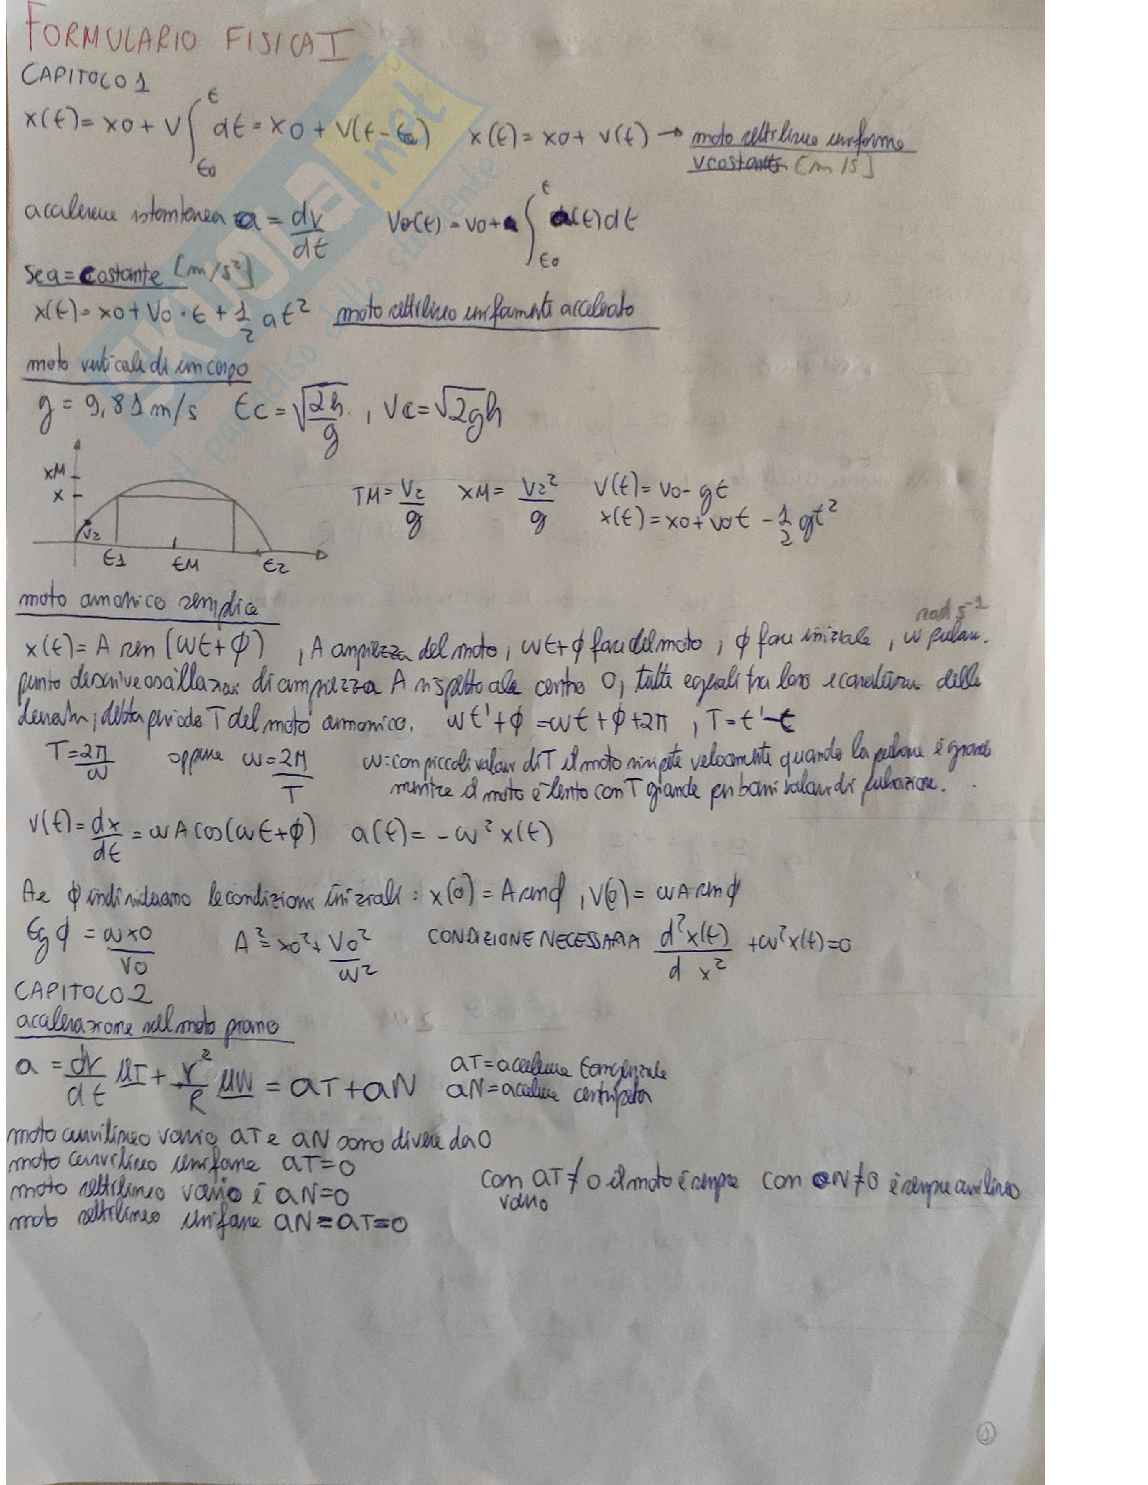 FORMULARIO FISICA I
CAPITOLO 1
x(t) = x0 + v ∫t0^t dt = x0 + v(t - t0)   x(t) = x0 + v(t) → moto rettilineo uniforme
v costante [m/s]
accelerazione istantanea a = dv/dt   v(t) = v0 + ∫t0^t a(t) dt
Se a = costante [m/s²]
x(t) = x0 + v0 · t + 1/2 at²   moto rettilineo uniformemente accelerato
moto verticale di un corpo
g = 9,81 m/s   tc = √(2h/g) , vc = √2gh
xM
x
v2
t1 tM t2
TM = v2/g   xM = v2²/g   v(t) = v0 - gt
x(t) = x0 + v0t - 1/2 gt²
moto armonico semplice
rad s⁻¹
x(t) = A sen (ωt + ϕ) , A ampiezza del moto, ωt + ϕ fase del moto, ϕ fase iniziale, ω pulsaz.
punto descrive oscillazioni di ampiezza A rispetto al centro O, tutte eguali tra loro e caratterizz. dalla
durata, detta periodo T del moto armonico. ωt' + ϕ = ωt + ϕ + 2π , T = t' - t
T = 2π/ω   oppure ω = 2π/T   ω: con piccoli valori di T il moto si ripete velocemente quando la pulsaz. è grande
mentre il moto è lento con T grande per bassi valori di pulsazione.
v(t) = dx/dt = ωA cos(ωt + ϕ)   a(t) = -ω² x(t)
A e ϕ individuano le condizioni iniziali: x(0) = A senϕ , v(0) = ωA senϕ
tg ϕ = ωx0/v0   A² = x0² + v0²/ω²   CONDIZIONE NECESSARIA d²x(t)/d x² + ω²x(t) = 0
CAPITOLO 2
accelerazione nel moto piano
a = dv/dt uT + v²/R uN = aT + aN   aT = accelerazione tangenziale
aN = accelerazione centripeta
moto curvilineo vario aT e aN sono diverse da 0
moto curvilineo uniforme aT = 0
moto rettilineo vario è aN = 0   con aT ≠ 0 il moto è sempre vario   con aN ≠ 0 è sempre curvilineo
moto rettilineo uniforme aN = aT = 0
1